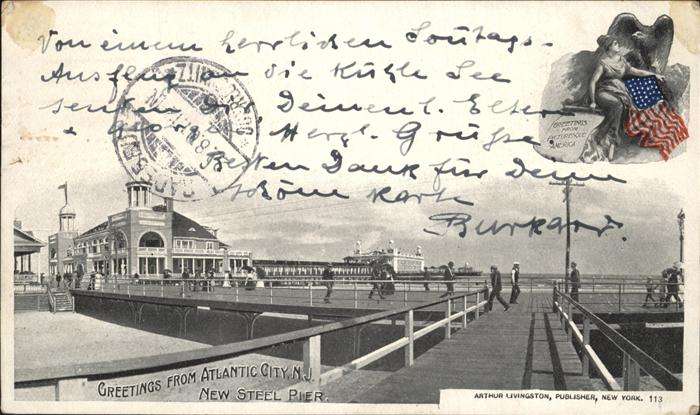 Von einem herrlichen Sontags-
Ausflug an die Kühle See
senden Dir, Deinen l. Eltern
+ George Herzl. Grüße
Besten Dank für Deine
schöne Karte
Burkart.
GREETINGS
FROM
PICTURESQUE
AMERICA
GREETINGS FROM ATLANTIC CITY, N.J.
NEW STEEL PIER.
ARTHUR LIVINGSTON, PUBLISHER, NEW YORK. 113